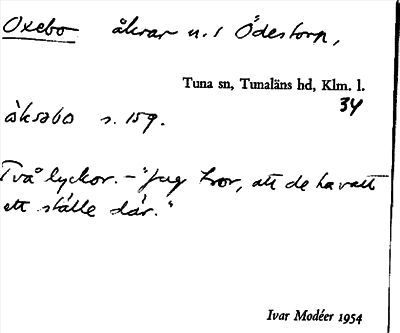 Oxebo åkrar u. 1 Ödestorp,
Tuna sn, Tunaläns hd, Klm. l.
34
åksəbo s. 159.
Två lyckor. – "Jag tror, att de ha vatt
ett ställe där."
Ivar Modéer 1954